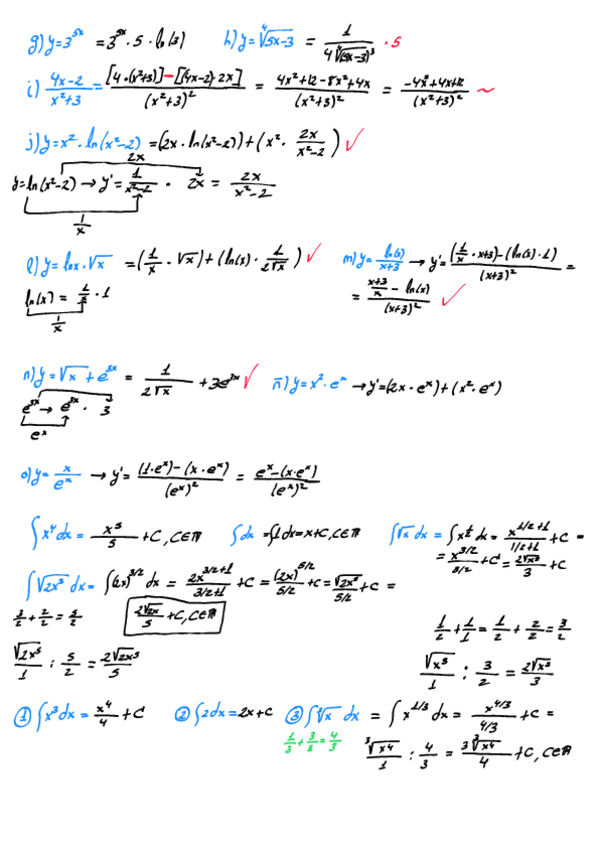 g) y=3^{5x} = 3^{5x} · 5 · ln(3) h) y=∜(5x-3) = 1/(4∜(5x-3)^3) · 5
i) (4x-2)/(x²+3) = ([4·(x²+3)]-[(4x-2)·2x])/(x²+3)² = (4x²+12-8x²+4x)/(x²+3)² = (-4x²+4x+12)/(x²+3)² ~
j) y=x²·ln(x²-2) = (2x·ln(x²-2))+(x²· 2x/(x²-2)) ✓
2x
y=ln(x²-2) → y'= 1/(x²-2) · 2x = 2x/(x²-2)
1/x
l) y=lnx·√x = (1/x · √x)+(ln(x)· 1/(2√x)) ✓ m) y= ln(x)/(x+3) → y'= ((1/x · x+3)-(ln(x)·1))/(x+3)² =
ln(x) = 1/x · 1 = ((x+3)/x - ln(x))/(x+3)² ✓
1/x
n) y=√x + e^{3x} = 1/(2√x) + 3e^{3x} ✓ ñ) y=x²·e^x → y'=(2x·e^x)+(x²·e^x)
e^{3x} → e^{3x} · 3
e^x
o) y= x/e^x → y'= ((1·e^x)-(x·e^x))/(e^x)² = (e^x-(x·e^x))/(e^x)²
∫x⁴dx = x⁵/5 +C, C∈ℝ ∫dx =∫1dx=x+C, C∈ℝ ∫√x dx = ∫x^{1/2} dx = x^{1/2+1}/(1/2+1) +C =
= x^{3/2}/(3/2) +C = 2√x³/3 +C
∫√2x³ dx = ∫(2x)^{3/2} dx = 2x^{3/2+1}/(3/2+1) +C = (2x)^{5/2}/(5/2) +C = √2x⁵/(5/2) +C =
3/2 + 2/2 = 5/2 2√2x/5 +C, C∈ℝ 1/2 + 1/1 = 1/2 + 2/2 = 3/2
√2x⁵/1 : 5/2 = 2√2x⁵/5 √x³/1 : 3/2 = 2√x³/3
① ∫x³dx = x⁴/4 +C ② ∫2dx = 2x+C ③ ∫∛x dx = ∫x^{1/3} dx = x^{4/3}/(4/3) +C =
1/3 + 3/3 = 4/3 ∛x⁴/1 : 4/3 = 3∛x⁴/4 +C, C∈ℝ